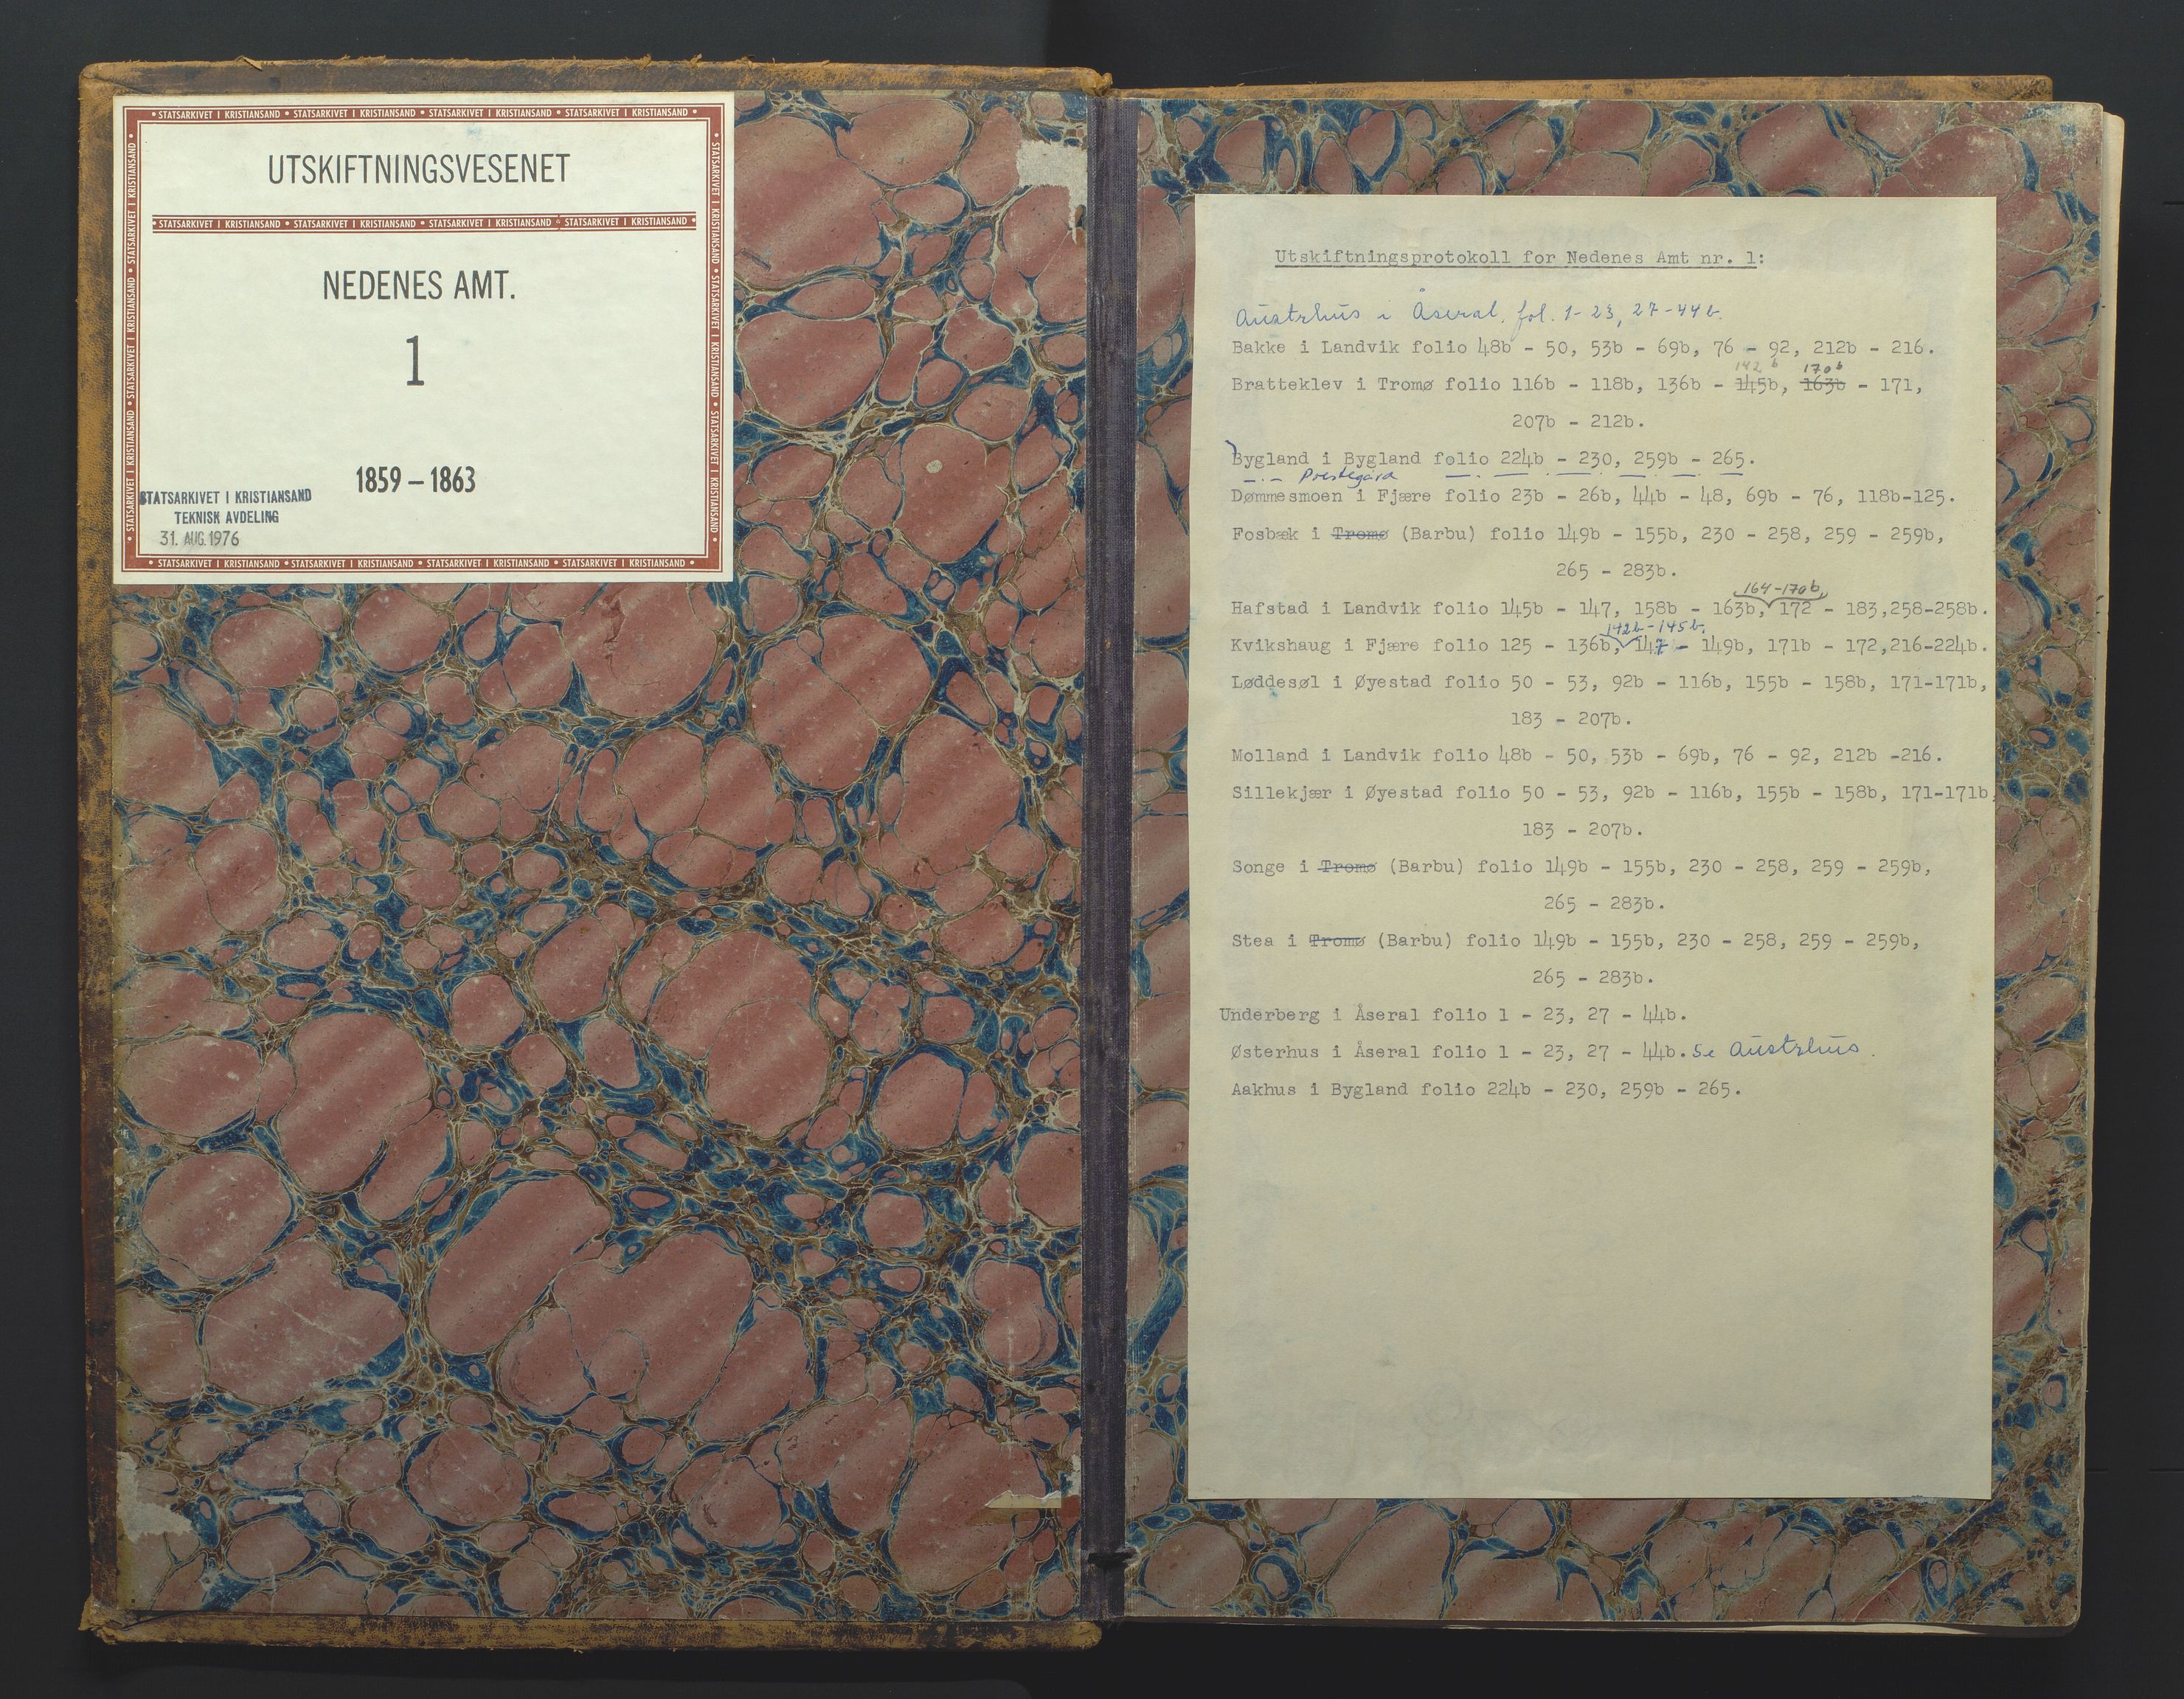 • STATSARKIVET I KRISTIANSAND • STATSARKIVET I KRISTIANSAND • STATSARKIVET I KRISTIANSAND • STATSARKIVET I KRISTIANSAND •
UTSKIFTNINGSVESENET
• STATSARKIVET I KRISTIANSAND • STATSARKIVET I KRISTIANSAND • STATSARKIVET I KRISTIANSAND • STATSARKIVET I KRISTIANSAND •
NEDENES AMT.
1
1859 – 1863
STATSARKIVET I KRISTIANSAND
TEKNISK AVDELING
31. AUG. 1976
• STATSARKIVET I KRISTIANSAND • STATSARKIVET I KRISTIANSAND • STATSARKIVET I KRISTIANSAND • STATSARKIVET I KRISTIANSAND •
Utskiftningsprotokoll for Nedenes Amt nr. 1:
Austrhus i Åseral, fol. 1-23, 27-44b
Bakke i Landvik folio 48b - 50, 53b - 69b, 76 - 92, 212b - 216.
142b 170b
Bratteklev i Tromø folio 116b - 118b, 136b - 145b, 163b - 171,
207b - 212b.
Bygland i Bygland folio 224b - 230, 259b - 265.
-.- Prestegård -.- -.-
Dømmesmoen i Fjære folio 23b - 26b, 44b - 48, 69b - 76, 118b-125.
Fosbæk i Tromø (Barbu) folio 149b - 155b, 230 - 258, 259 - 259b,
265 - 283b.
164-170b,
Hafstad i Landvik folio 145b - 147, 158b - 163b, 172 - 183,258-258b.
142b-145b,
Kvikshaug i Fjære folio 125 - 136b, 147 - 149b, 171b - 172,216-224b.
Løddesøl i Øyestad folio 50 - 53, 92b - 116b, 155b - 158b, 171-171b,
183 - 207b.
Molland i Landvik folio 48b - 50, 53b - 69b, 76 - 92, 212b -216.
Sillekjær i Øyestad folio 50 - 53, 92b - 116b, 155b - 158b, 171-171b,
183 - 207b.
Songe i Tromø (Barbu) folio 149b - 155b, 230 - 258, 259 - 259b,
265 - 283b.
Stea i Tromø (Barbu) folio 149b - 155b, 230 - 258, 259 - 259b,
265 - 283b.
Underberg i Åseral folio 1 - 23, 27 - 44b.
Østerhus i Åseral folio 1 - 23, 27 - 44b. Se Austrhus.
Aakhus i Bygland folio 224b - 230, 259b - 265.